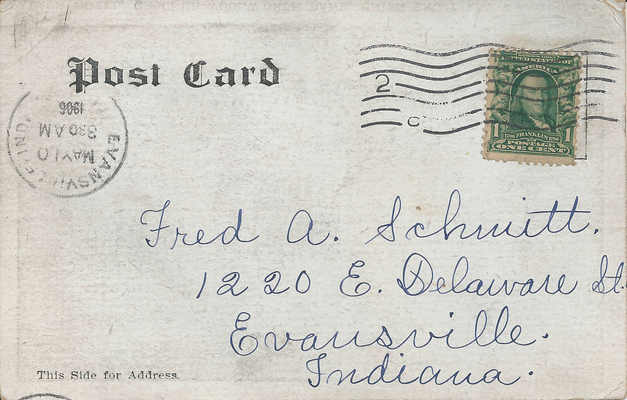 Post Card
2
C
UNITED STATES OF
AMERICA
1 FRANKLIN 1
POSTAGE
ONE CENT
EVANSVILLE IND.
MAY 10
330 AM
1906
Fred A. Schmitt.
1220 E. Delaware St.
Evansville.
Indiana.
This Side for Address.